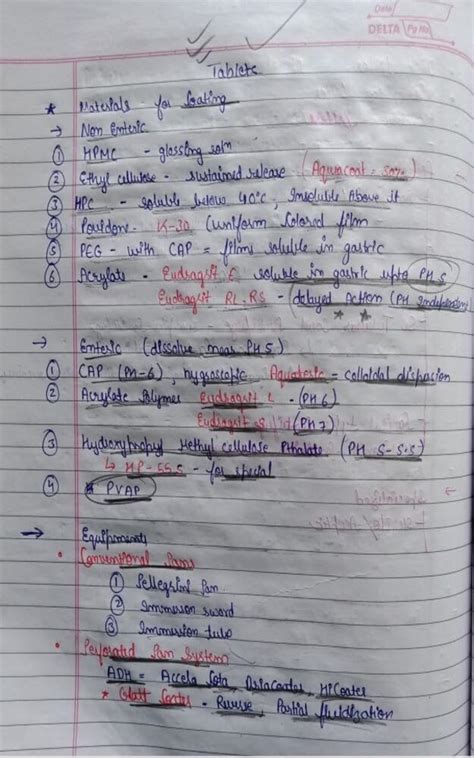 DELTA Pg No.
Tablets
* Materials for Coating
→ Non Enteric
① HPMC - glossing soln
② Ethyl cellulose - sustained release (Aquacoat = 30%)
③ HPC - soluble below 40°C, Insoluble Above it
④ Povidone - K-30 (uniform Colored film
⑤ PEG - with CAP = films soluble in gastric
⑥ Acrylate - Eudragit E soluble in gastric upto PH 5
Eudragit RL, RS - delayed Action (PH Independen)
* *
→ Enteric (dissolve near PH 5)
① CAP (PH-6), hygroscopic Aquateric = colloidal dispasion
② Acrylate Polymes Eudragit L - (PH 6)
Eudragit S (PH 7)
③ Hydroxyhropyl Methyl Cellulose Pthalate (PH 5-5.5)
↳ HP-55S - for special
④ * PVAP
→ Equipments
• Conventional Pans
① Pellegrini Pan
② Immersion sword
③ Immersion tube
• Perforated Pan System
ADH = Accela Cota, Driacoater, HiCoater
* Glatt Coater - Reverse, Partial fluidization